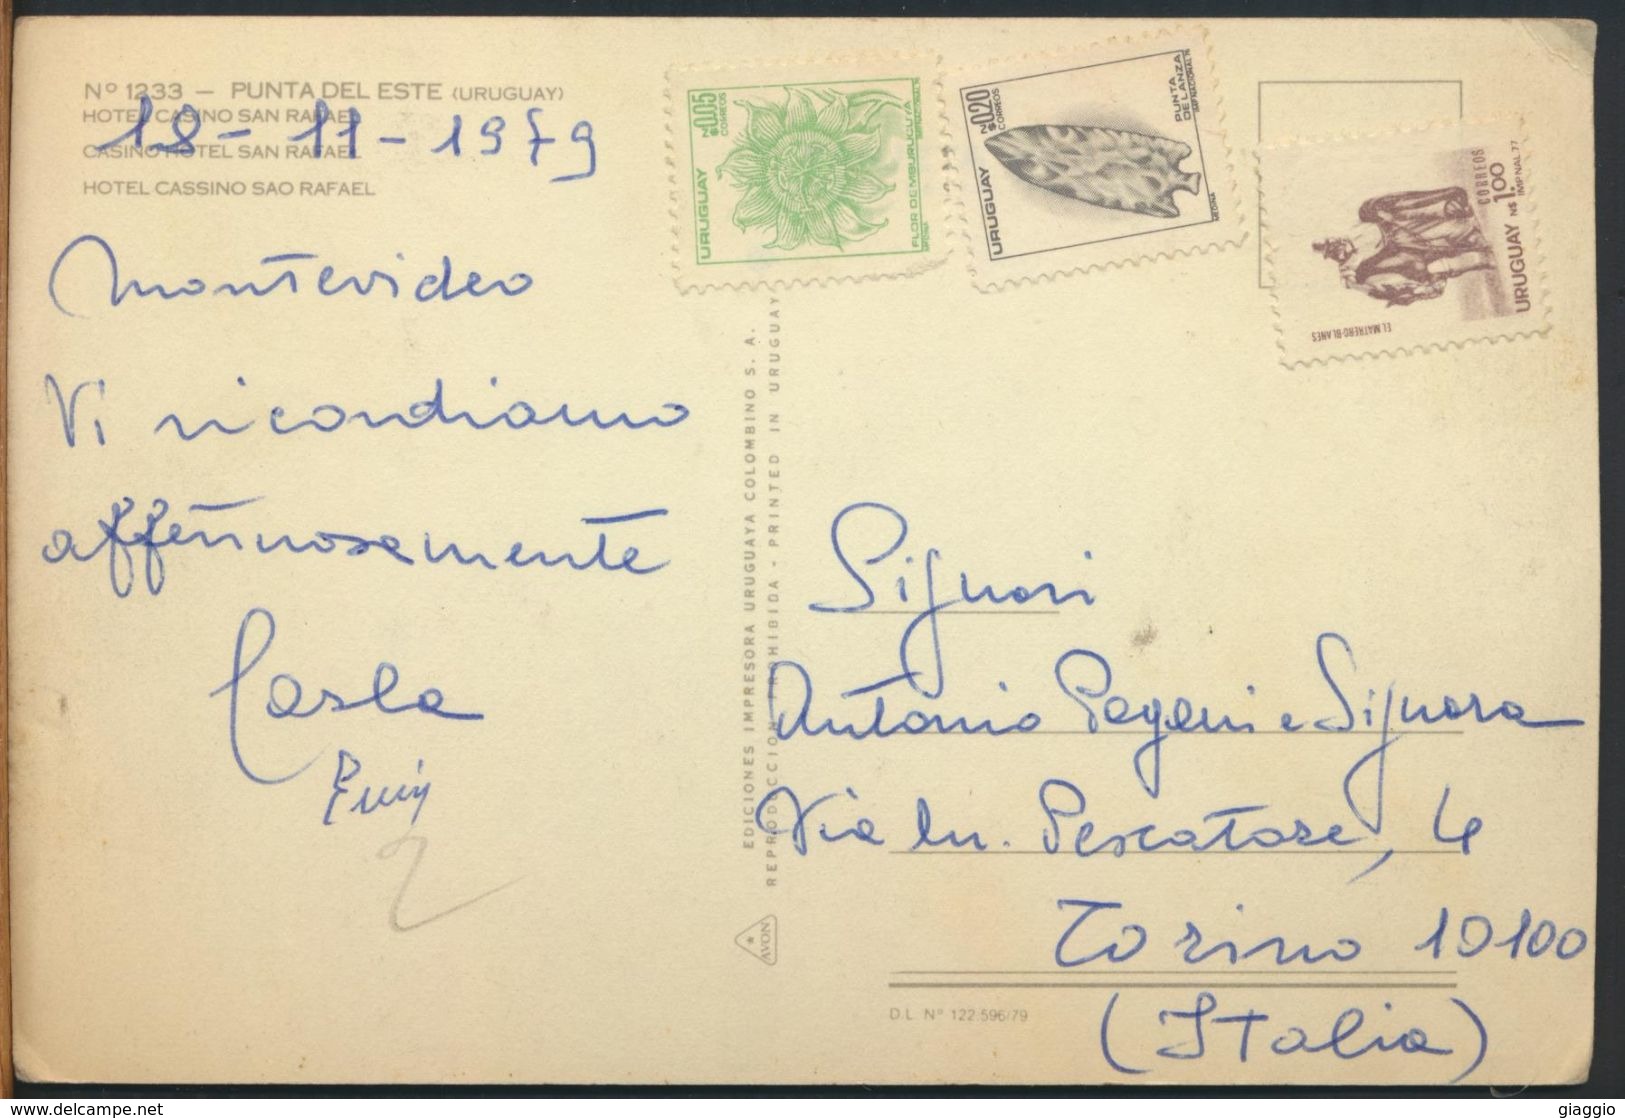 Nº 1233 — PUNTA DEL ESTE (URUGUAY)
HOTEL CASINO SAN RAFAEL
CASINO HOTEL SAN RAFAEL
HOTEL CASSINO SAO RAFAEL
18-11-1979
Montevideo
Vi ricordiamo
affettuosamente
Carla
EDICIONES IMPRESORA URUGUAYA COLOMBINO S. A.
REPRODUCCION PROHIBIDA - PRINTED IN URUGUAY
AVON
URUGUAY
N$ 0.05
CORREOS
FLOR DE MBURUCUYA
IMP. NACIONAL
MEDINA
URUGUAY
N$ 0.20
CORREOS
PUNTA
DE LANZA
IMP. NACIONAL 76
MEDINA
CORREOS
URUGUAY N$ 1.00
IMP NAL 77
EL MATRERO-BLANES
Signori
Antonio Pagani e Signora
Via Lu. Pescatore, 4
Torino 10100
(Italia)
D.L. Nº 122.596/79
https://www.delcampe.net
giaggio